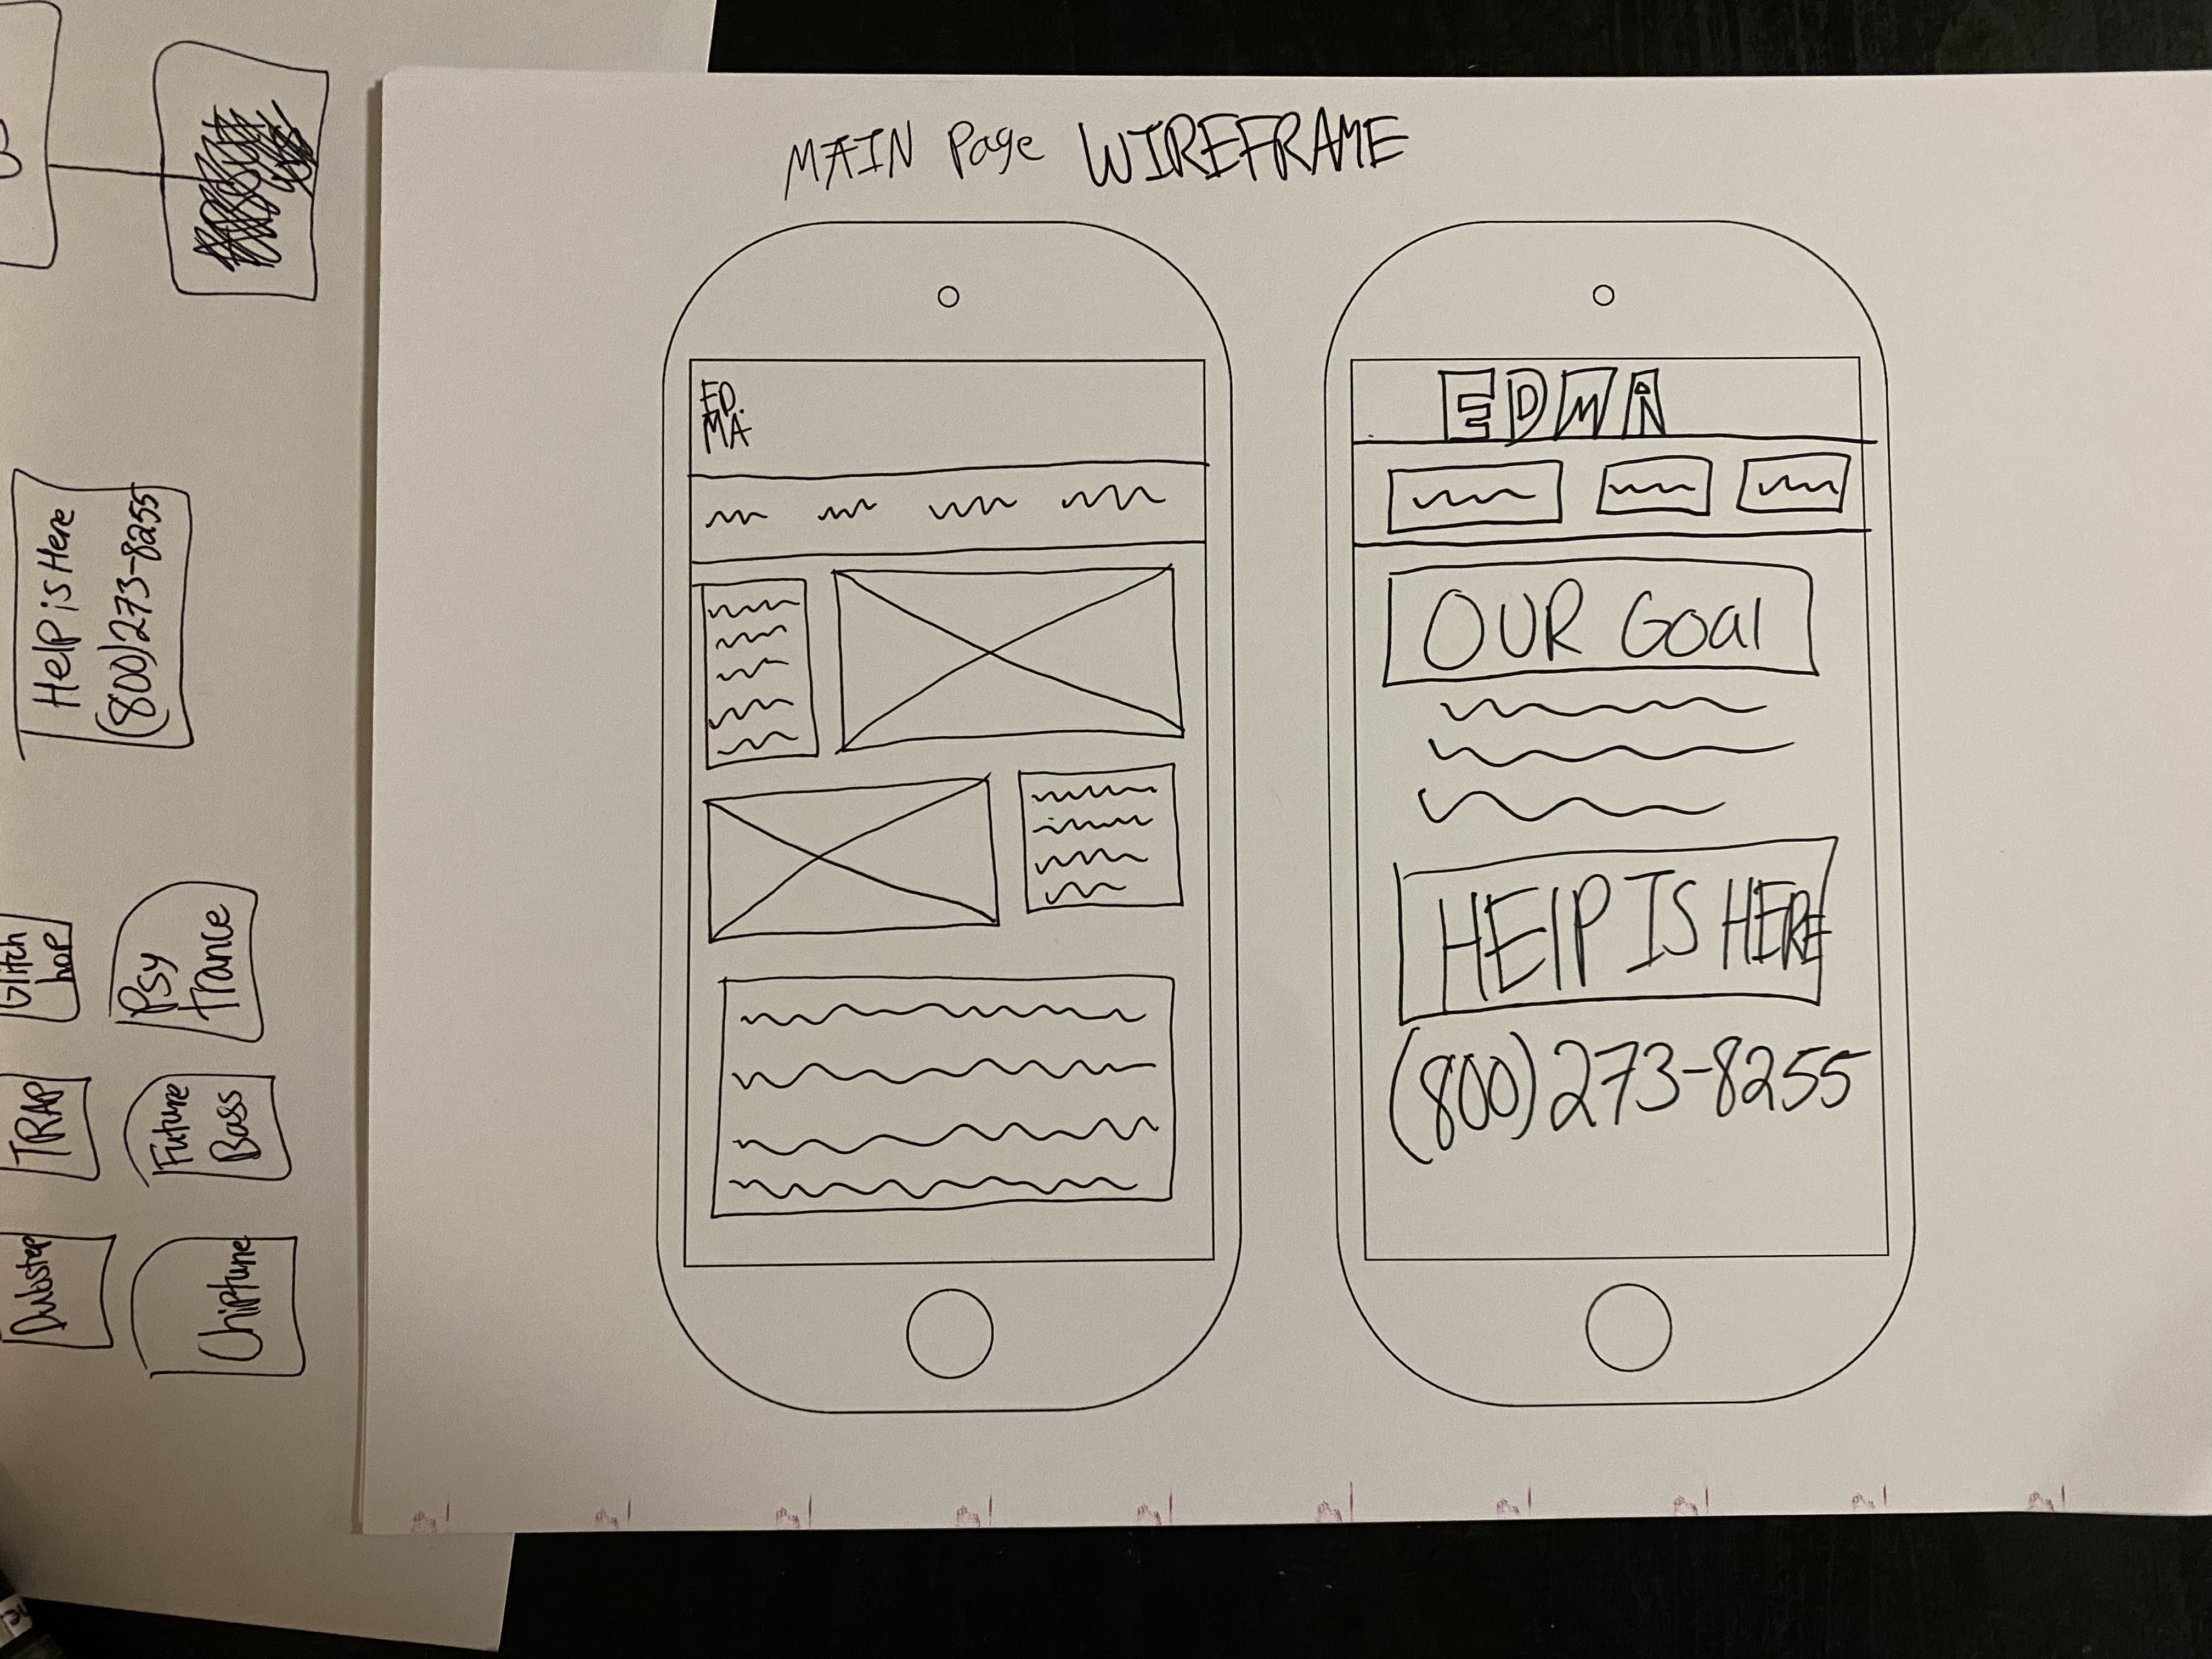 Dubstep
TRAP
Glitch
hop
Chiptune
Future
Bass
Psy
Trance
Help is Here
(800)273-8255
MAIN Page WIREFRAME
ED
MA
EDMA
OUR Goal
HELP IS HERE
(800)273-8255